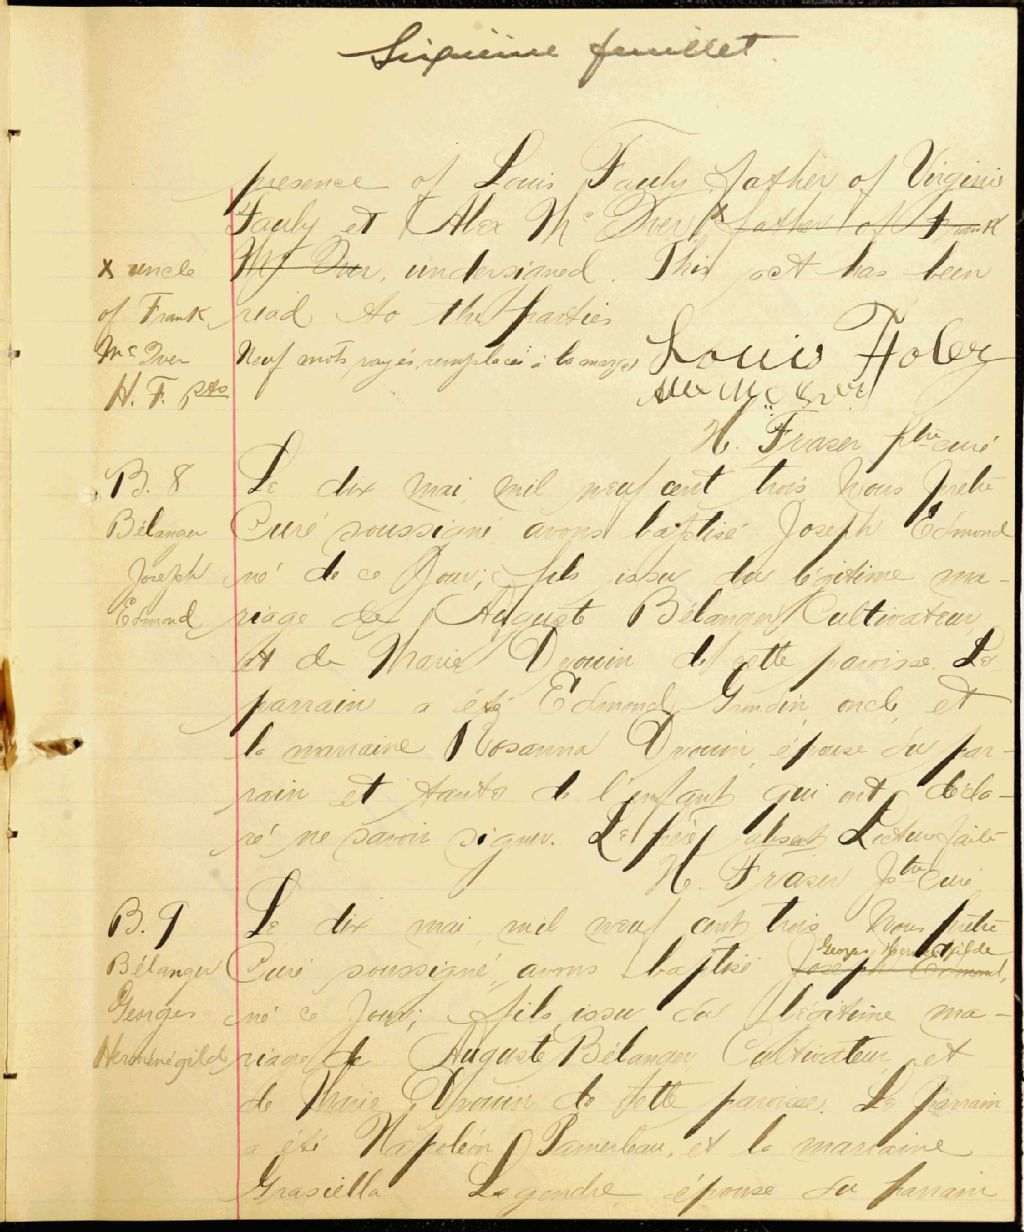 Sixième feuillet
presence of Louis Fauly father of Virginie
Fauly et Alex Mc Iver x father of Frank
x uncle
Mc Iver, undersigned. This act has been
of Frank
read to the parties
Mc Iver
Neuf mots rayés remplacés à la marge
Louis Foley
H. F. ptre
Alex Mc Iver
H. Fraser ptre curé
B. 8
Bélanger
Joseph
Edmond
Le dix mai mil neuf cent trois Nous prêtre
Curé soussigné avons baptisé Joseph Edmond
né de ce Jour, fils issu du légitime ma-
riage de Auguste Bélanger Cultivateur
et de Marie Drouin de cette paroisse. Le
parrain a été Edmond Grondin, oncle, et
la marraine Rosanna Drouin, épouse du par-
rain et tante de l'enfant qui ont décla-
ré ne savoir signer. Le père absent Lecture faite
H. Fraser Ptre Curé
B. 9
Bélanger
Georges
Herménégilde
Le dix mai mil neuf cent trois Nous prêtre
Georges Herménégilde
Curé soussigné, avons baptisé Joseph Edmond,
né ce Jour, fils issu du légitime ma-
riage de Auguste Bélanger Cultivateur, et
de Marie Drouin de cette paroisse. Le parrain
a été Napoléon Pamerleau, et la marraine
Grasiella Legendre épouse du parrain